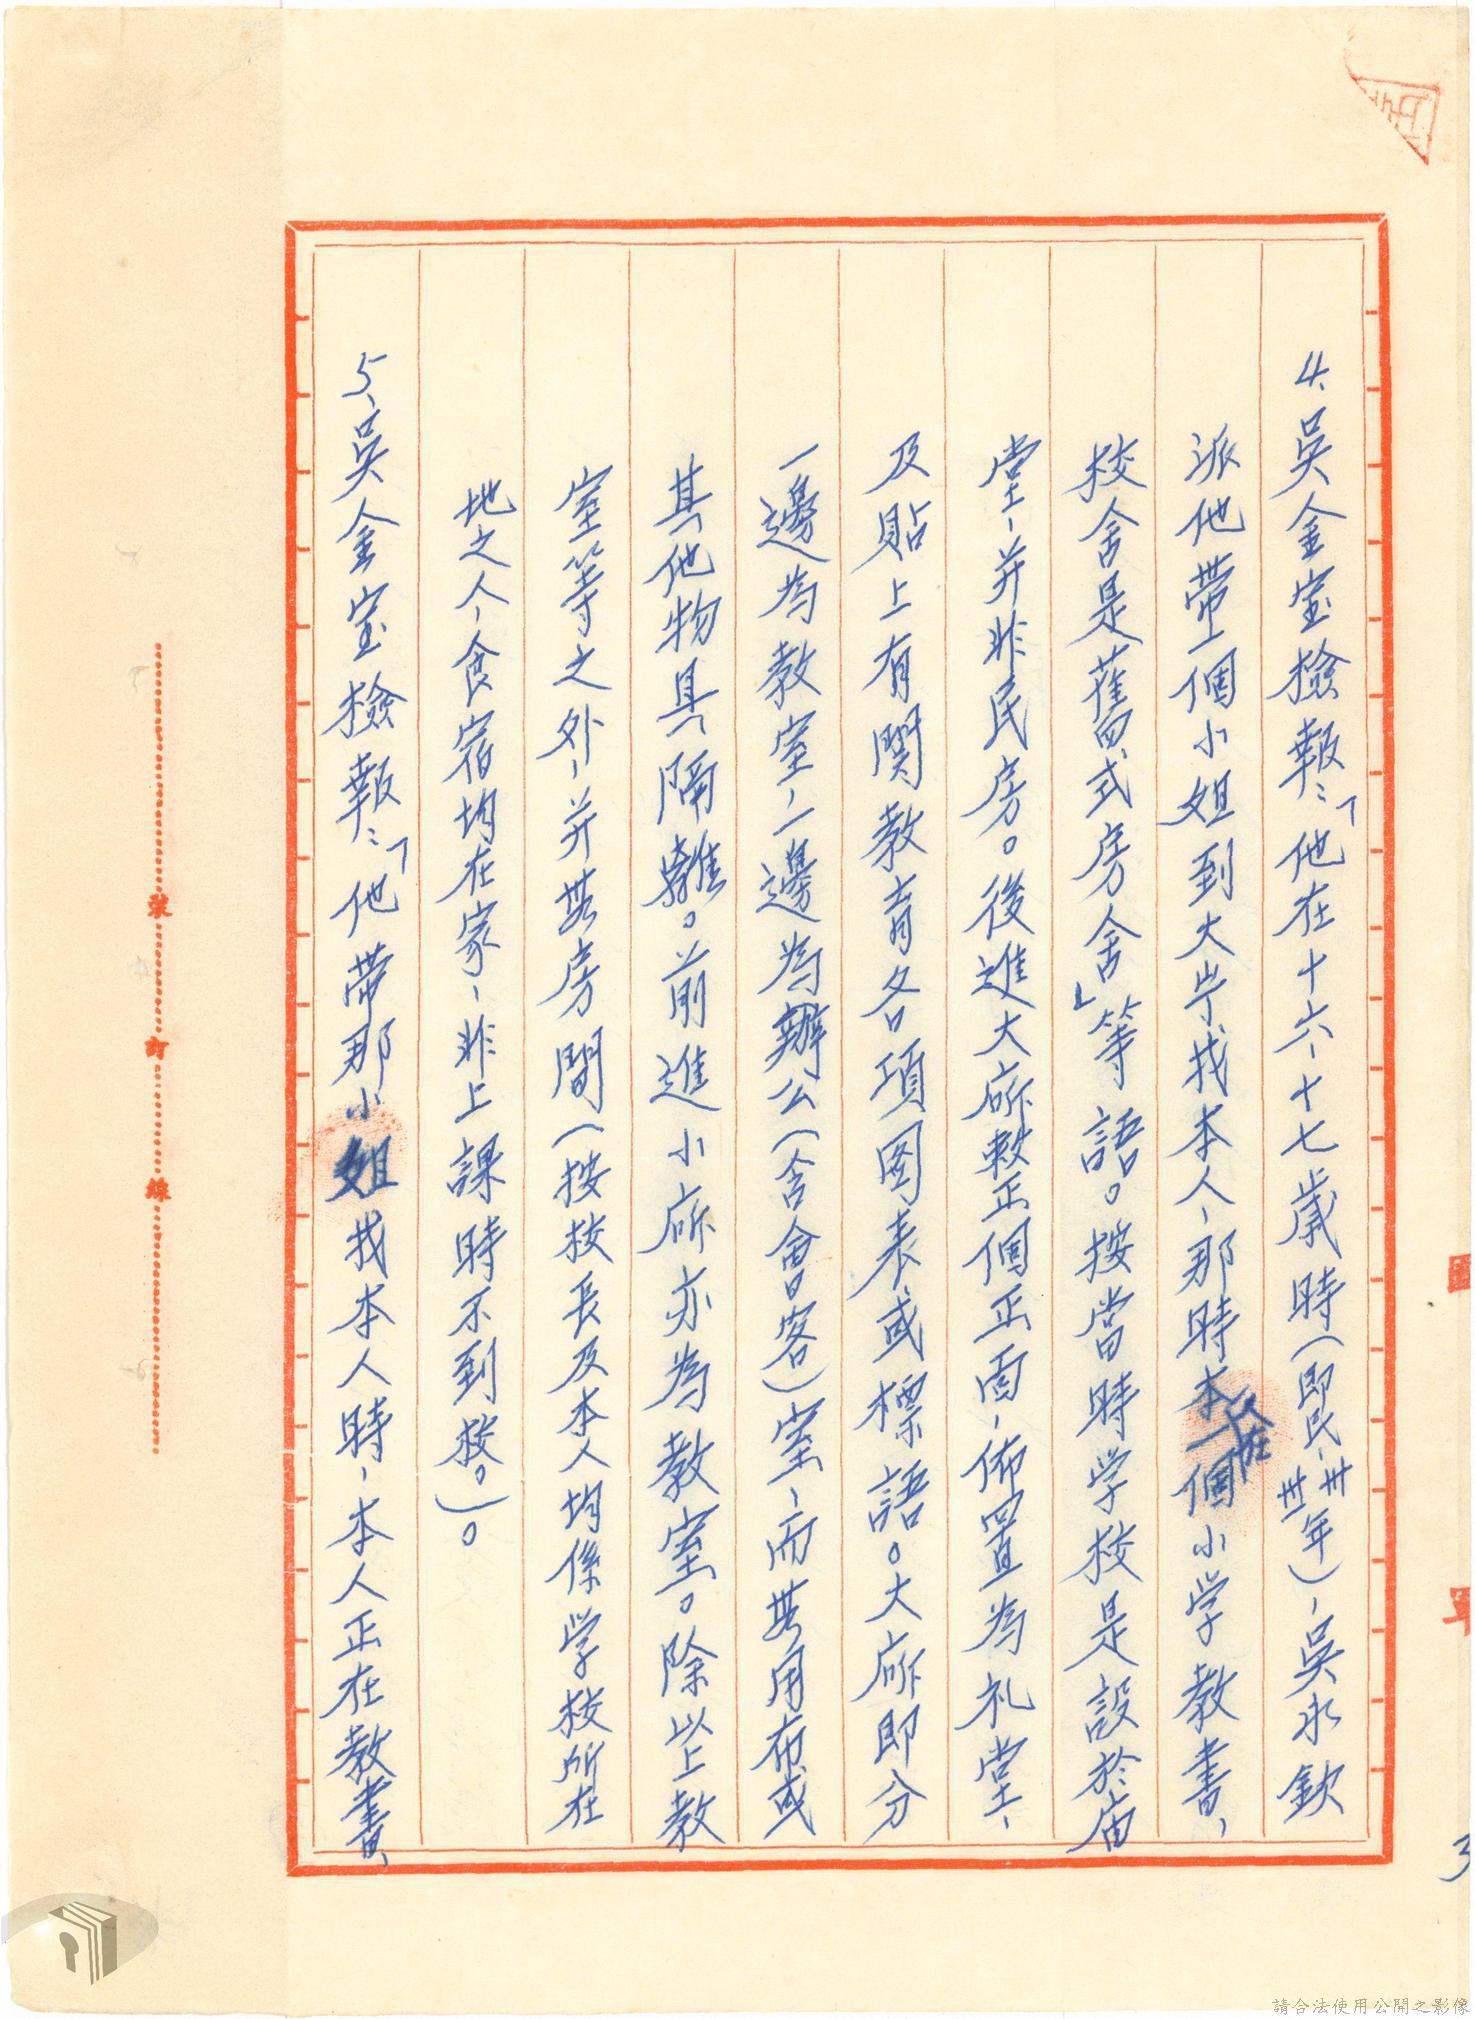 4、吳金宝檢報：「他在十六、十七歲時（即民、卅卅一年）、吳永欽
派他帶一個小姐到大岞找本人、那時本人在一個小学教書、
校舍是舊式房舍」等語。按當時学校是設於庙
堂、并非民房。後進大廳整正個正面、佈置為礼堂、
及貼上有関教育各項图表或標語。大廳即分
一邊為教室、一邊為辦公（含會客）室、而無用布或
其他物具隔離。前進小廳亦為教室。除以上教
室等之外、并無房間（按校長及本人均係学校所在
地之人、食宿均在家、非上課時不到校。）。
5、吳金宝檢報：「他帶那小姐找本人時、本人正在教書、
裝訂線
3
請合法使用公開之影像